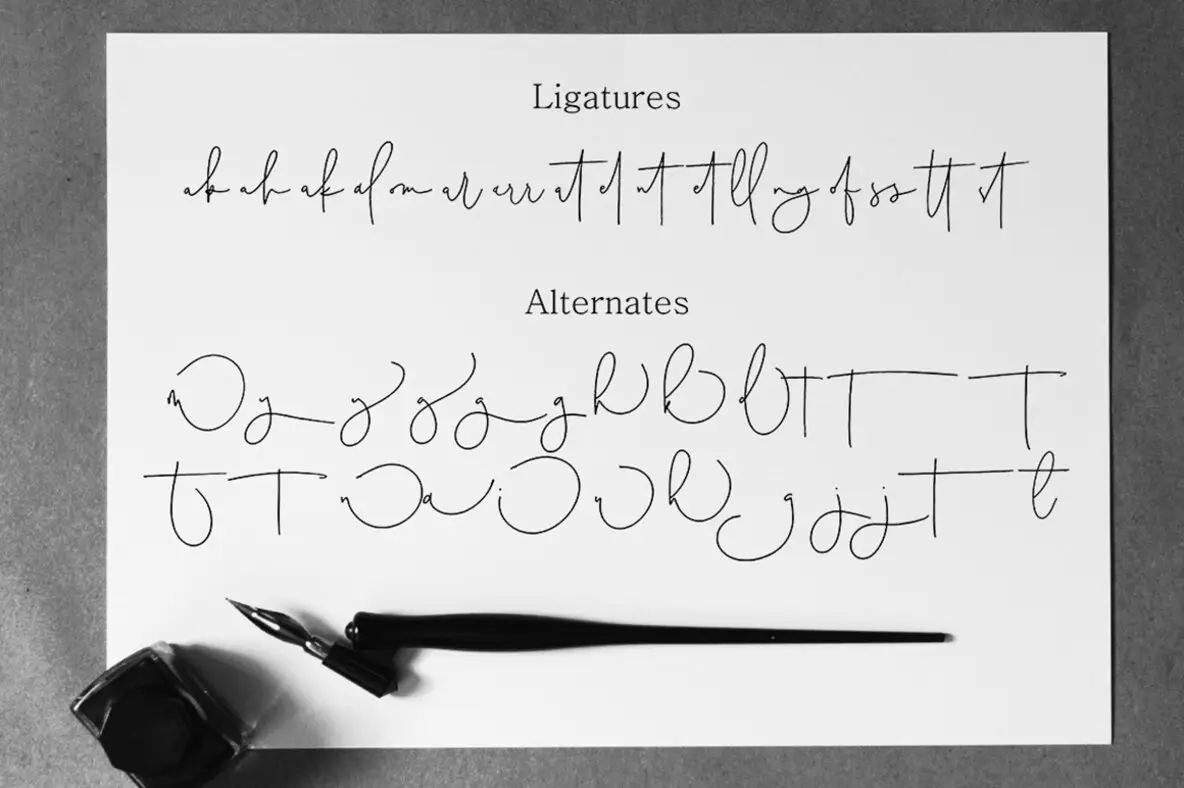 Ligatures
ab ah ak al om ar err at el nt et ll ng of ss tt st
Alternates
m y y y g g h k l t T T
t T n a i n h g j j T t